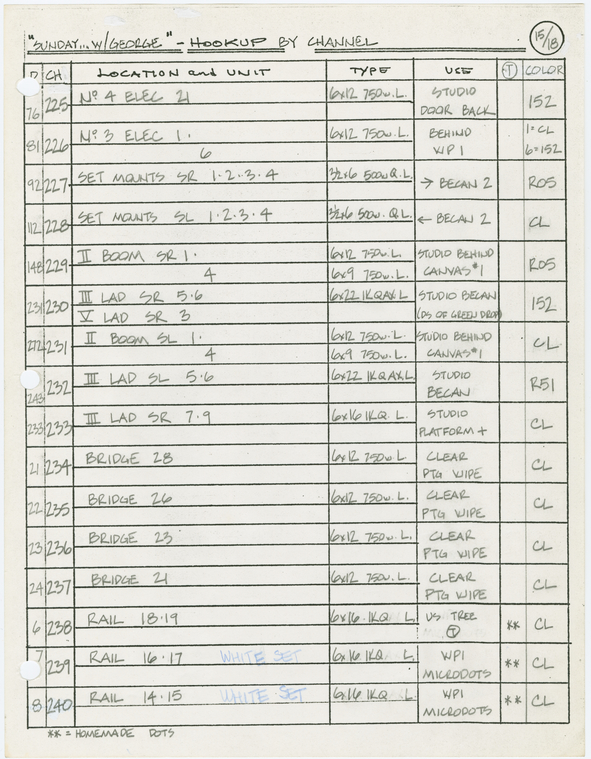 "SUNDAY... W/GEORGE" - HOOKUP BY CHANNEL 15/18
D CH. LOCATION and UNIT TYPE USE T COLOR
76 225 Nº 4 ELEC 21 6x12 750w.L. STUDIO DOOR BACK 152
81 226 Nº 3 ELEC 1. 6x12 750w.L. BEHIND 1=CL
6 WP 1 6=152
92 227 SET MOUNTS SR 1·2·3·4 3½x6 500w.Q.L. → BECAN 2 R05
112 228 SET MOUNTS SL 1·2·3·4 3½x6 500w.Q.L. ← BECAN 2 CL
148 229 II BOOM SR 1. 6x12 750w.L. STUDIO BEHIND R05
4 6x9 750w.L. CANVAS #1
231 230 III LAD SR 5·6 6x22 1KQAX.L STUDIO BECAN 152
V LAD SR 3 (DS OF GREEN DROP)
272 231 II BOOM SL 1. 6x12 750w.L. STUDIO BEHIND CL
4 6x9 750w.L. CANVAS #1
243 232 III LAD SL 5·6 6x22 1KQAX.L STUDIO BECAN R51
233 233 III LAD SR 7·9 6x16 1KQ.L. STUDIO PLATFORM + CL
21 234 BRIDGE 28 6x12 750w.L. CLEAR PTG WIPE CL
22 235 BRIDGE 26 6x12 750w.L. CLEAR PTG WIPE CL
23 236 BRIDGE 23 6x12 750w.L. CLEAR PTG WIPE CL
24 237 BRIDGE 21 6x12 750w.L. CLEAR PTG WIPE CL
6 238 RAIL 18·19 6x16 1KQ L. US TREE T ** CL
7 239 RAIL 16·17 WHITE SET 6x16 1KQ L. WP1 MICRODOTS ** CL
8 240 RAIL 14·15 WHITE SET 6x16 1KQ L. WP1 MICRODOTS ** CL
** = HOMEMADE DOTS